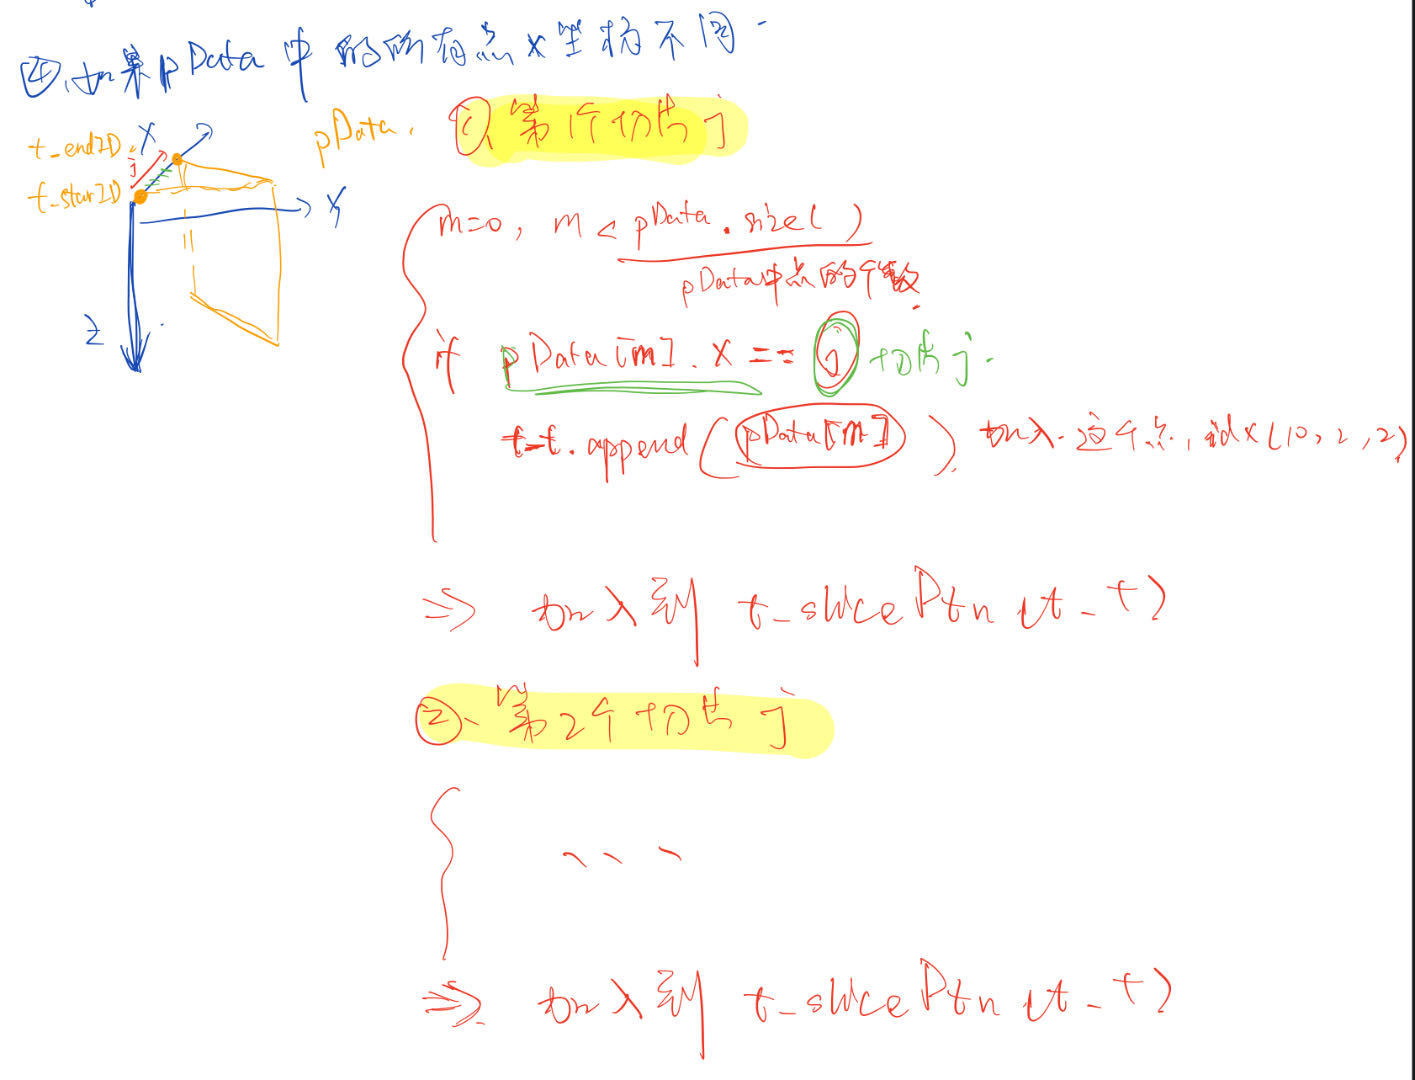 ④、如果pData中的所有点x坐标不同.
t_end2D.
X
pData.
①、第1个切片j
j
t_star2D
Y
m=0, m < pData.size()
pData中点的个数
Z
if pData[m].x == j 切片j.
t_t.append(pData[m]). 加入.这个点, idx(10, 2, 2)
⇒ 加入到 t_slicePtn(t_t)
②、第2个切片j
、、、
⇒ 加入到 t_slicePtn(t_t)